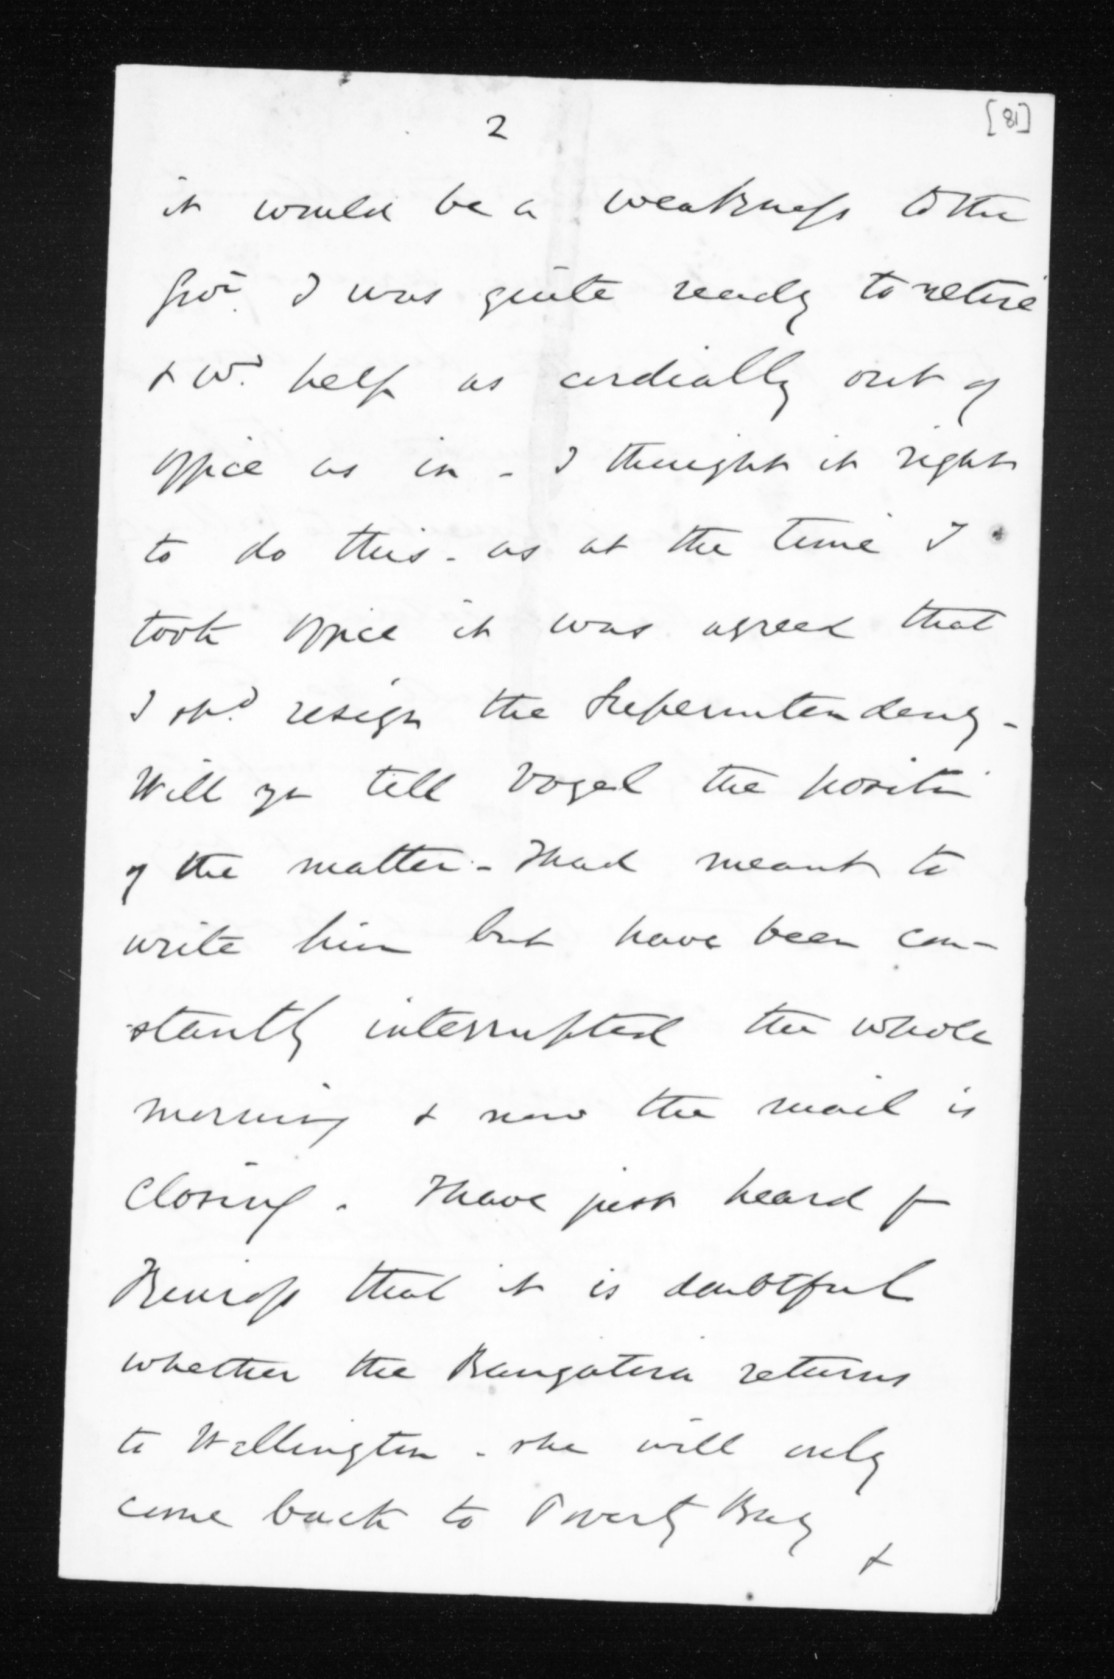 2
[81]
it would be a weakness to the
Govt. I was quite ready to retire
& wd. help as cordially out of
office as in - I thought it right
to do this - as at the time I
took office it was agreed that
I shd. resign the Superintendency -
Will yr tell Vogel the positn
of the matter - I had meant to
write him but have been con-
stantly interrupted the whole
morning & now the mail is
closing. I have just heard fr
that it is doubtful
whether the Rangatira returns
to Wellington - she will only
come back to Poverty Bay
&